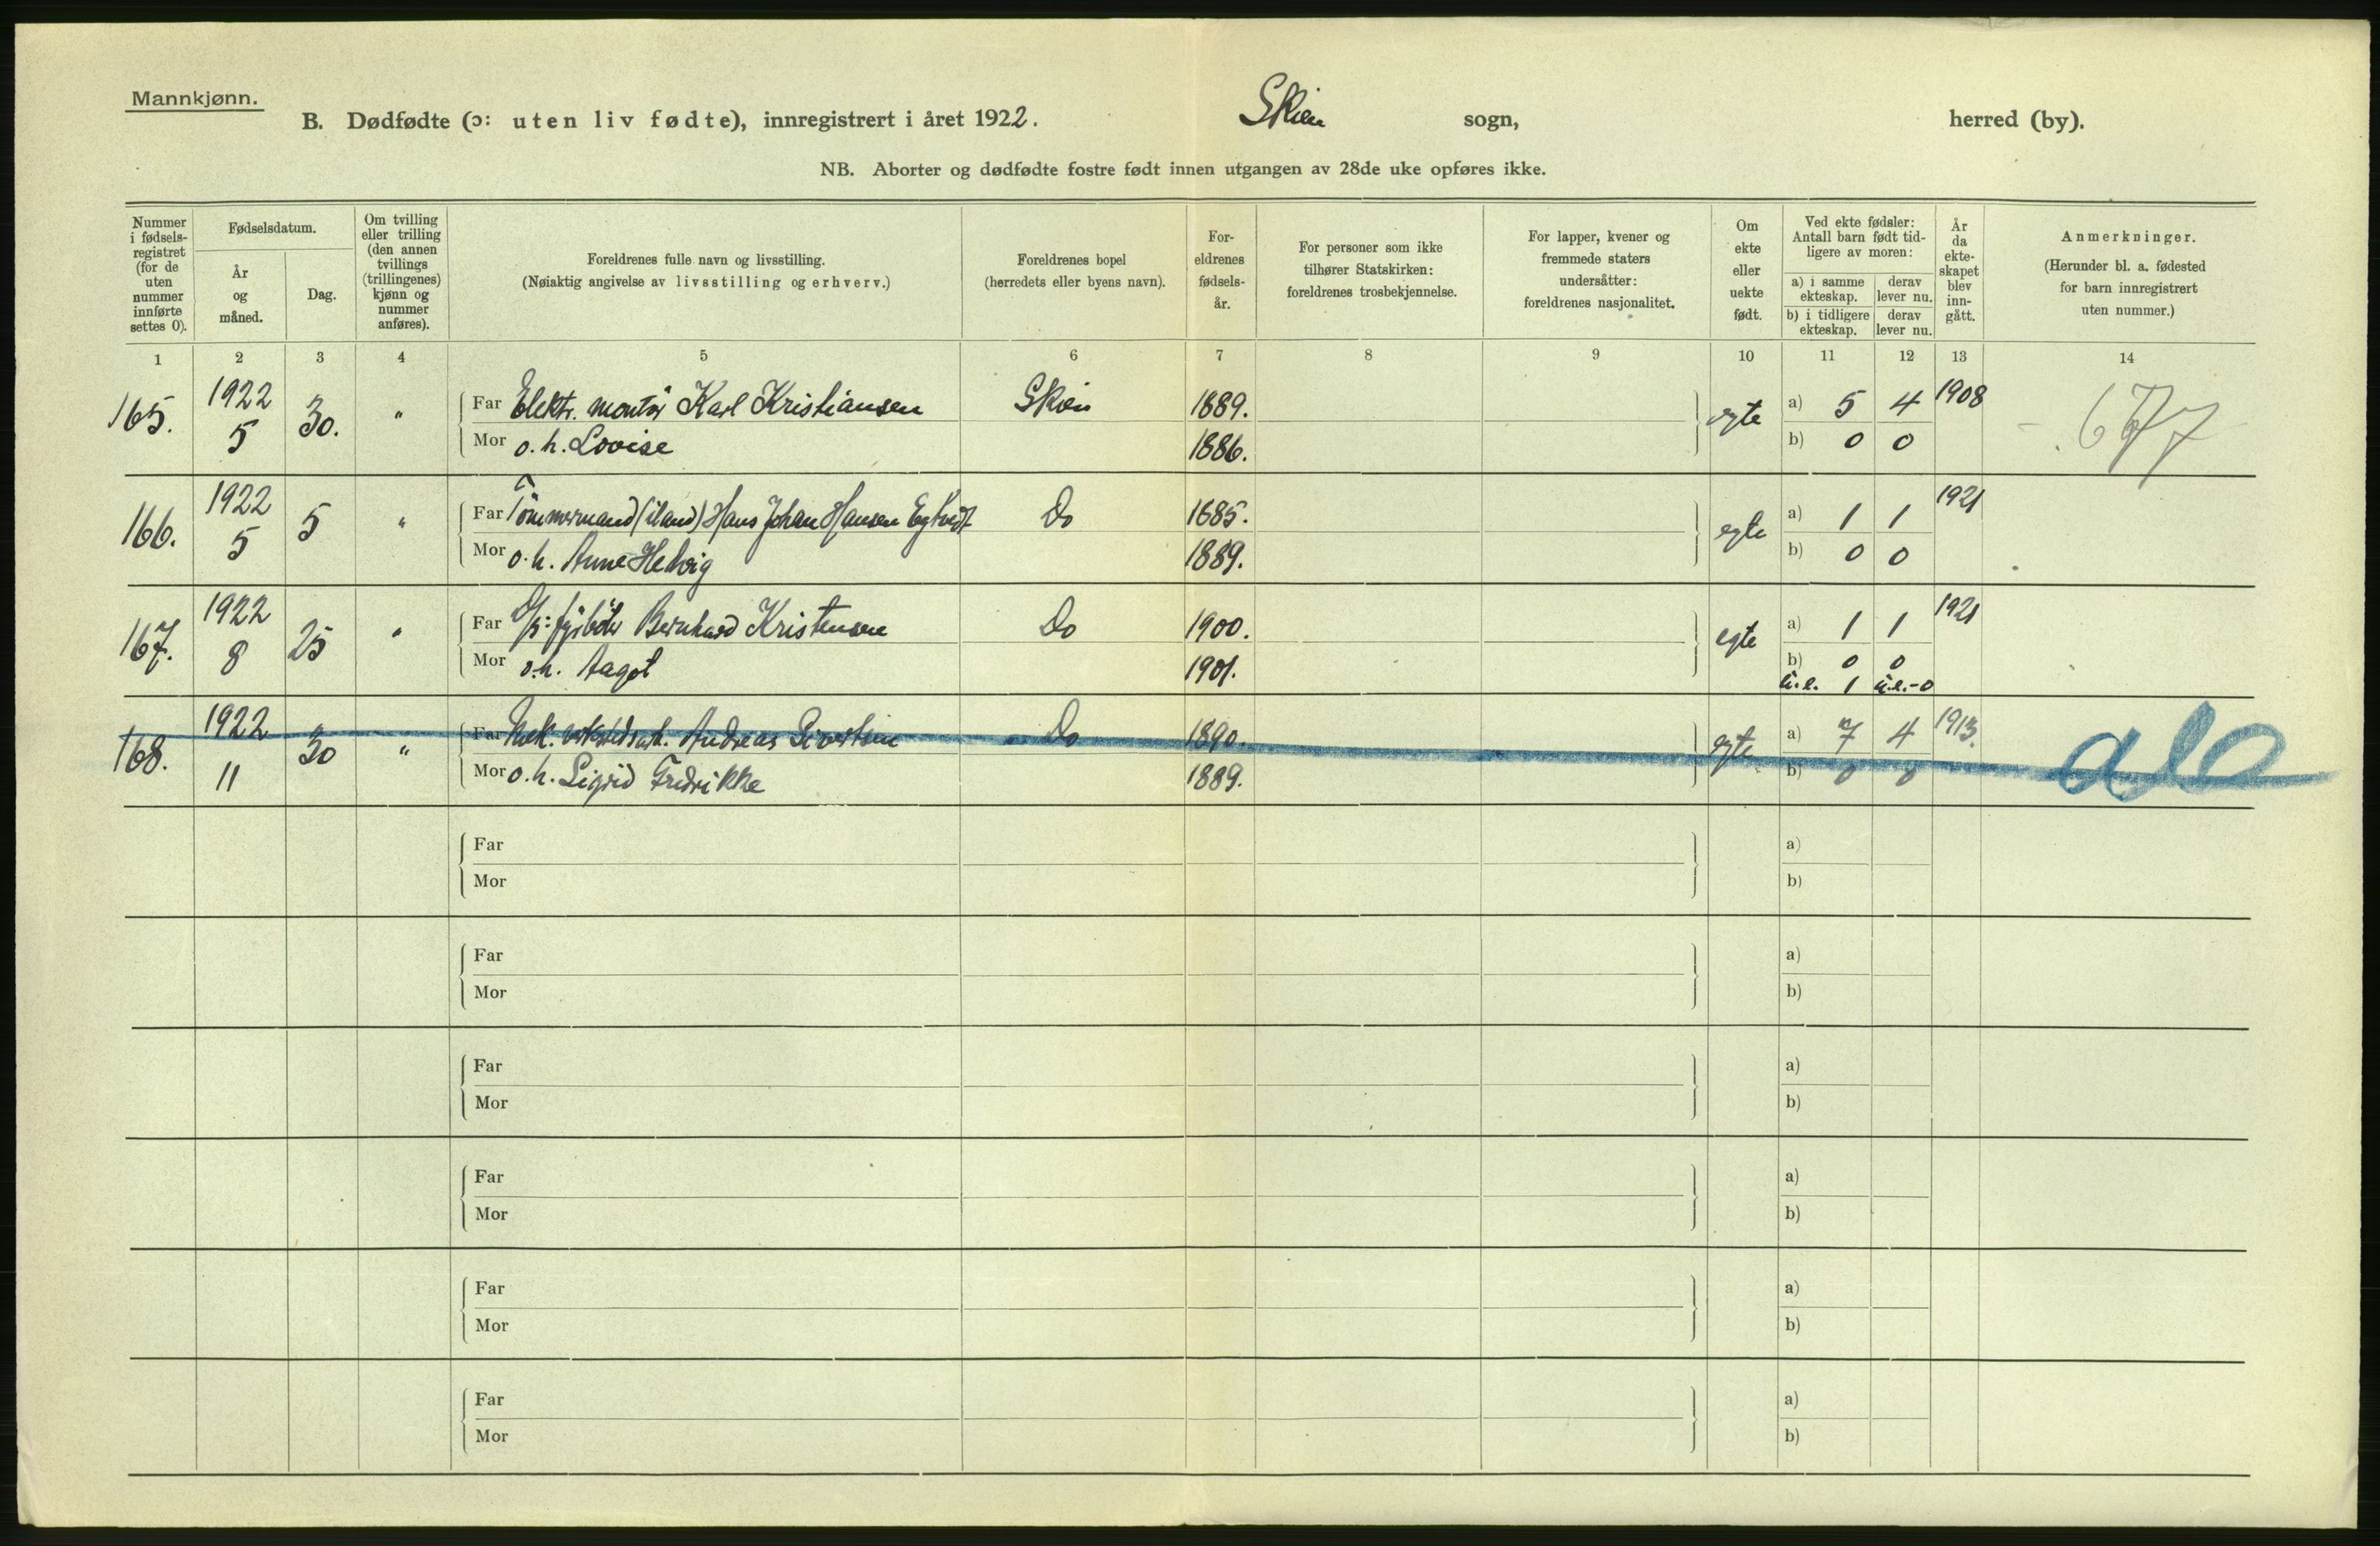 Mannkjønn.
B. Dødfødte (ɔ: uten liv fødte), innregistrert i året 1922. Skien sogn, herred (by).
NB. Aborter og dødfødte fostre født innen utgangen av 28de uke opføres ikke.
Nummer i fødsels-registret (for de uten nummer innførte settes 0).
Fødselsdatum.
År og måned.
Dag.
Om tvilling eller trilling (den annen tvillings (trillingenes) kjønn og nummer anføres).
Foreldrenes fulle navn og livsstilling.
(Nøiaktig angivelse av livsstilling og erhverv.)
Foreldrenes bopel
(herredets eller byens navn).
For-eldrenes fødsels-år.
For personer som ikke tilhører Statskirken: foreldrenes trosbekjennelse.
For lapper, kvener og fremmede staters undersåtter: foreldrenes nasjonalitet.
Om ekte eller uekte født.
Ved ekte fødsler: Antall barn født tid-ligere av moren:
a) i samme ekteskap. derav lever nu.
b) i tidligere ekteskap. derav lever nu.
År da ekte-skapet blev inn-gått.
Anmerkninger.
(Herunder bl. a. fødested for barn innregistrert uten nummer.)
1 2 3 4 5 6 7 8 9 10 11 12 13 14
165. 1922 5 30. " Far Elektr. montør Karl Kristiansen Skien 1889. egte a) 5 4 1908 677
Mor o. h. Lovise 1886. b) 0 0
166. 1922 5 5 " Far Tømmermand (iland) Hans Johan Hansen Do 1885. egte a) 1 1 1921
Mor o. h. Anne Helvig 1889. b) 0 0
167. 1922 8 25 " Far Bernhard Kristensen Do 1900. egte a) 1 1 1921
Mor o. h. Aagot 1901. b) 0 0
u.e. 1 u.e. - 0
168. 1922 11 30 " Far Mek. verkstedsarb. Andreas Sivertsen Do 1890. egte a) 7 4 1913.
Mor o. h. Sigrid Fredrikke 1889. b) 0 0
Far a)
Mor b)
Far a)
Mor b)
Far a)
Mor b)
Far a)
Mor b)
Far a)
Mor b)
Far a)
Mor b)